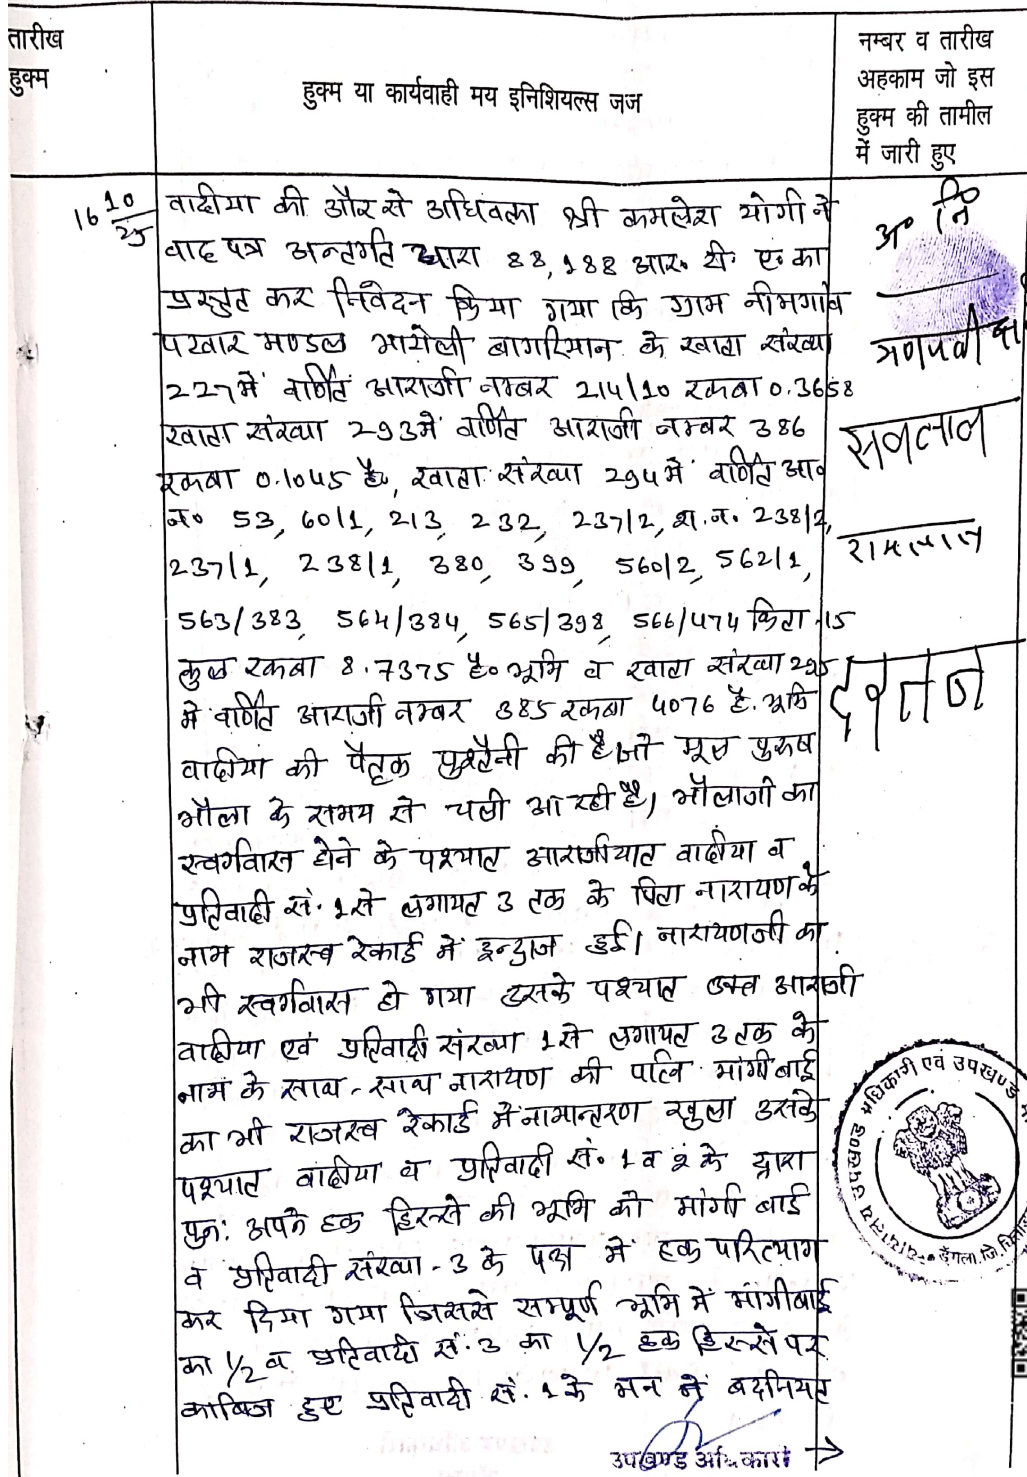 तारीख
हुक्म
हुक्म या कार्यवाही मय इनिशियल्स जज
नम्बर व तारीख
अहकाम जो इस
हुक्म की तामील
में जारी हुए
16 10/25
वादीया की और से अधिवक्ता श्री कमलेश योगी ने
वाद पत्र अन्तर्गत धारा 88, 188 आर. टी. ए. का
प्रस्तुत कर निवेदन किया गया कि ग्राम नीमगांव
पटवार मण्डल भाटोली बागरियान के खाता संख्या
227 में वर्णित आराजी नम्बर 214/10 रकबा 0.3658
खाता संख्या 293 में वर्णित आराजी नम्बर 386
रकबा 0.1045 है, खाता संख्या 294 में वर्णित आ०
न० 53, 60/1, 213, 232, 237/2, 238/2,
237/1, 238/1, 380, 399, 560/2, 562/1,
563/383, 564/384, 565/398, 566/474 किता 15
कुल रकबा 8.7375 है० भूमि व खाता संख्या 295
में वर्णित आराजी नम्बर 385 रकबा 4076 है. भूमि
वादीया की पैतृक पुश्तैनी की है जो मूल पुरुष
भौला के समय से चली आ रही है, भौलाजी का
स्वर्गवास होने के पश्चात आराजीयात वादीया व
प्रतिवादी सं. 1 से लगायत 3 तक के पिता नारायण के
नाम राजस्व रेकार्ड में इन्द्राज हुई। नारायणजी का
भी स्वर्गवास हो गया उसके पश्चात उक्त आराजी
वादीया एवं प्रतिवादी संख्या 1 से लगायत 3 तक के
नाम के साथ-साथ नारायण की पत्नि मांगीबाई
का भी राजस्व रेकार्ड में नामान्तरण खुला उसके
पश्चात वादीया व प्रतिवादी सं. 1 व 2 के द्वारा
पुन: अपने हक हिस्से की भूमि को मांगी बाई
व प्रतिवादी संख्या-3 के पक्ष में हक परित्याग
कर दिया गया जिससे सम्पूर्ण भूमि में मांगीबाई
का 1/2 व प्रतिवादी सं. 3 का 1/2 हक हिस्से पर
काबिज हुए प्रतिवादी सं. 1 के मन में बदनियत
उपखण्ड अधिकारी →
अ० नि०
रामलाल
देवलाल
न्यायालय उपखण्ड अधिकारी एवं उपखण्ड